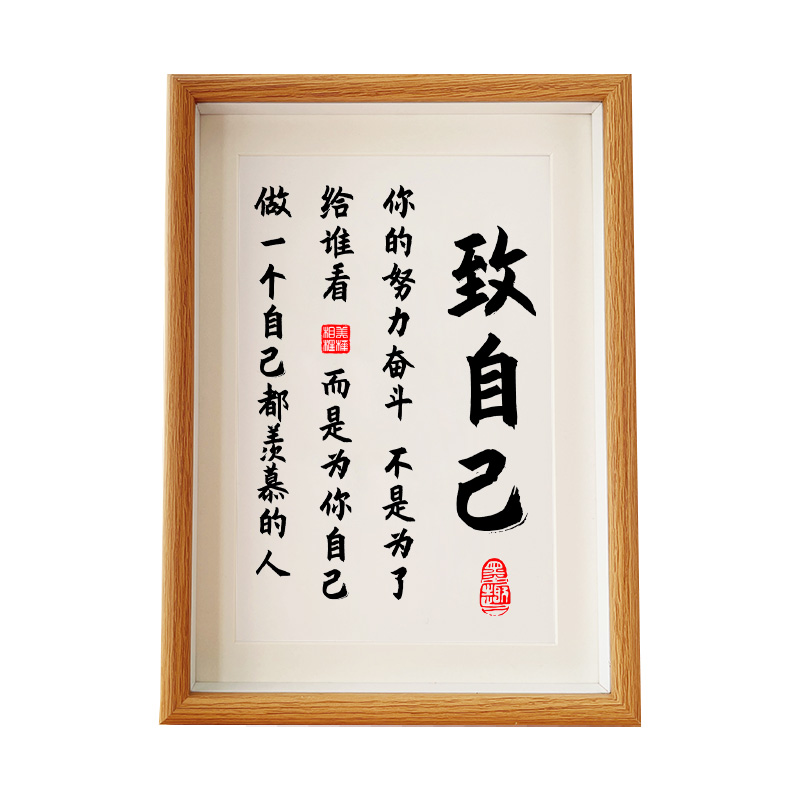 致自己
你的努力奋斗 不是为了
给谁看 而是为你自己
做一个自己都羡慕的人